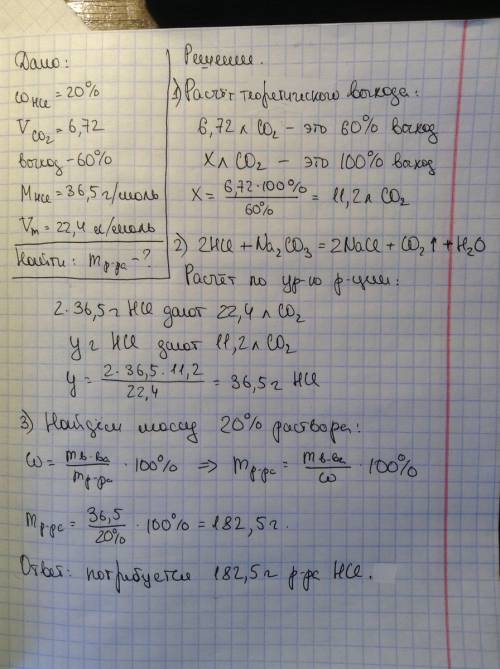 Дано:
ω HCl = 20%
V CO₂ = 6,72
выход – 60%
M HCl = 36,5 г/моль
Vm = 22,4 л/моль
Найти: m р-ра – ?
Решение.
1) Расчёт теоретического выхода:
6,72 л CO₂ – это 60% выход
X л CO₂ – это 100% выход
X = 6,72·100% / 60% = 11,2 л CO₂
2) 2HCl + Na₂CO₃ = 2NaCl + CO₂↑ + H₂O
Расчёт по ур-ю р-ции:
2·36,5 г HCl дают 22,4 л CO₂
y г HCl дают 11,2 л CO₂
y = 2·36,5·11,2 / 22,4 = 36,5 г HCl
3) Найдём массу 20% раствора:
ω = m в-ва / m р-ра · 100% ⇒ m р-ра = m в-ва / ω · 100%
m р-ра = 36,5 / 20% · 100% = 182,5 г.
Ответ: потребуется 182,5 г р-ра HCl.